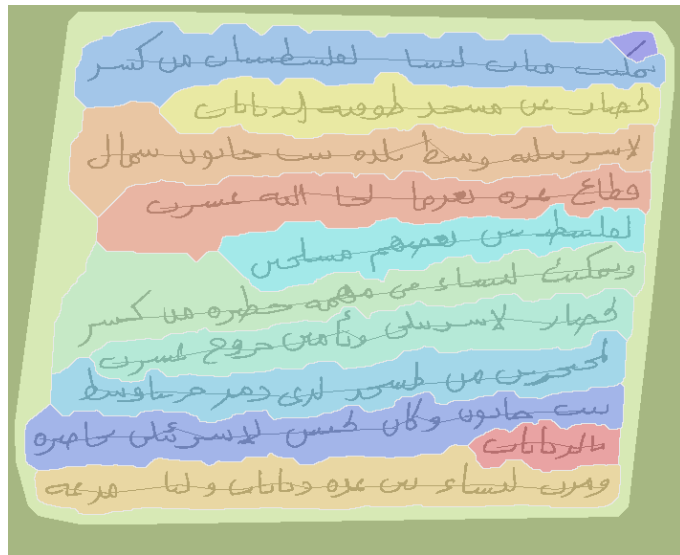 تمكنت مئات النساء الفلسطينيات من كسر
الحصار عن مسجد طوقته الدبابات
الاسرائيلية وسط بلدة بيت حانون شمال
قطاع غزة بعدما لجا اليه عشرات
الفلسطينيين بعضهم مسلحين
وتمكنت النساء في مهمة خطيرة من كسر
الحصار الاسرائيلي وتأمين خروج عشرات
المحتجزين من المسجد الذي دمر جزئيا وسط
بيت حانون وكان الجيش الاسرائيلي حاصره
بالدبابات
ومرت النساء بين عدة دبابات واليات مدرعة